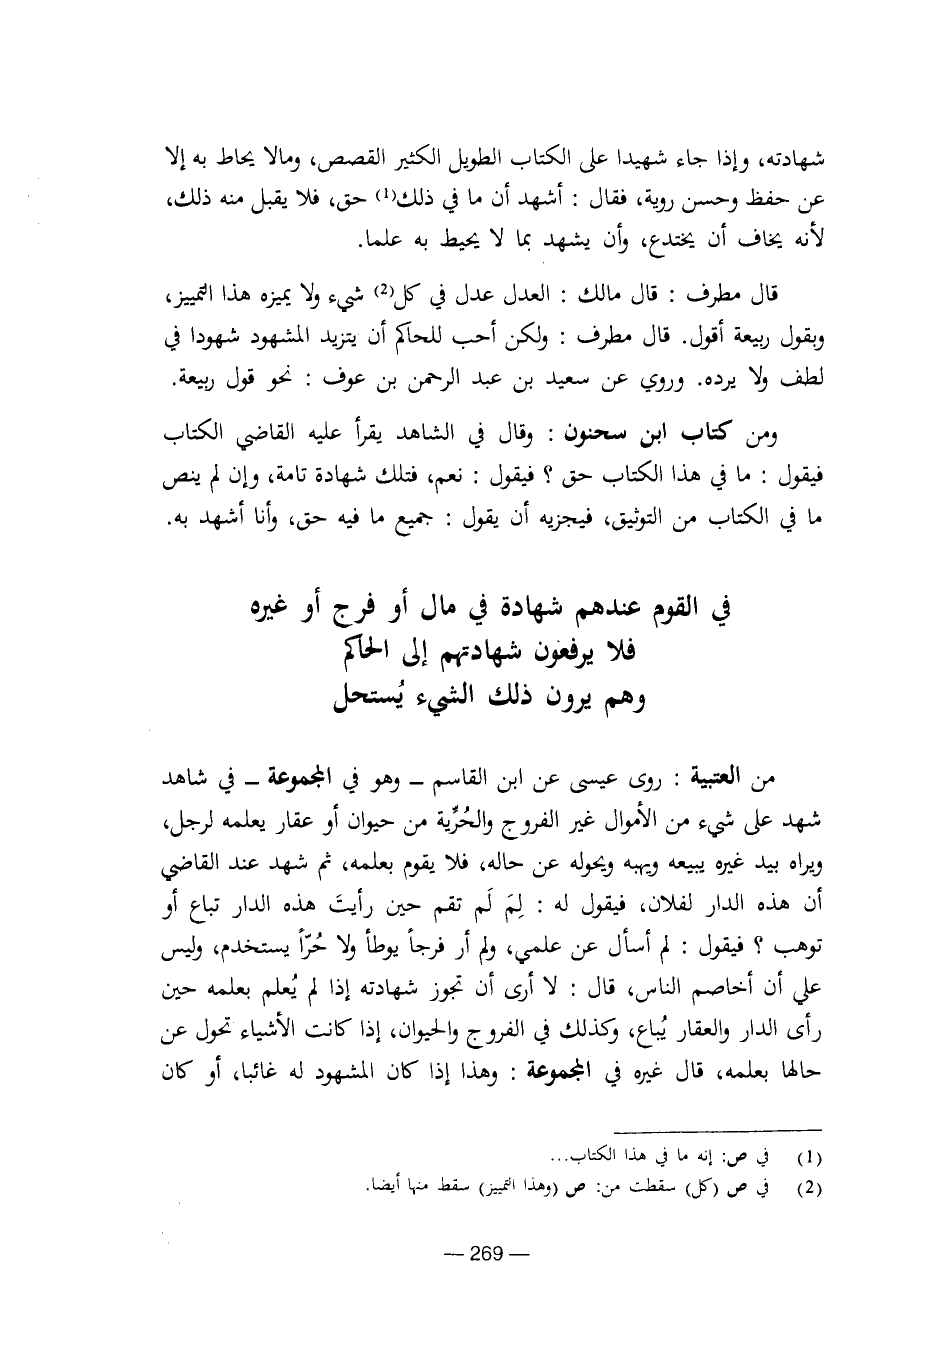 شهادته، وإذا جاء شهيدا على الكتاب الطويل الكثير القصص، ومالا يحاط به إلا
عن حفظ وحسن روية، فقال : أشهد أن ما في ذلك(1) حق، فلا يقبل منه ذلك،
لأنه يخاف أن يختدع، وأن يشهد بما لا يحيط به علما.
قال مطرف : قال مالك : العدل عدل في كل(2) شيء ولا يميزه هذا التمييز،
وبقول ربيعة أقول. قال مطرف : ولكن أحب للحاكم أن يتزيد المشهود شهودا في
لطف ولا يرده. وروي عن سعيد بن عبد الرحمن بن عوف : نحو قول ربيعة.
ومن كتاب ابن سحنون : وقال في الشاهد يقرأ عليه القاضي الكتاب
فيقول : ما في هذا الكتاب حق ؟ فيقول : نعم، فتلك شهادة تامة، وإن لم ينص
ما في الكتاب من التوثيق، فيجزيه أن يقول : جميع ما فيه حق، وأنا أشهد به.
في القوم عندهم شهادة في مال أو فرج أو غيره
فلا يرفعون شهادتهم إلى الحاكم
وهم يرون ذلك الشيء يُستحل
من العتبية : روى عيسى عن ابن القاسم ــ وهو في المجموعة ــ في شاهد
شهد على شيء من الأموال غير الفروج والحُرِّية من حيوان أو عقار يعلمه لرجل،
ويراه بيد غيره يبيعه ويهبه ويحوله عن حاله، فلا يقوم بعلمه، ثم شهد عند القاضي
أن هذه الدار لفلان، فيقول له : لِمَ لَم تقم حين رأيتَ هذه الدار تباع أو
توهب ؟ فيقول : لم أسأل عن علمي، ولم أر فرجاً يوطأ ولا حُرّاً يستخدم، وليس
علي أن أخاصم الناس، قال : لا أرى أن تجوز شهادته إذا لم يُعلم بعلمه حين
رأى الدار والعقار يُباع، وكذلك في الفروج والحيوان، إذا كانت الأشياء تحول عن
حالها بعلمه، قال غيره في المجموعة : وهذا إذا كان المشهود له غائبا، أو كان
(1) في ص: إنه ما في هذا الكتاب...
(2) في ص (كل) سقطت من: ص (وهذا التمييز) سقط منها أيضا.
— 269 —